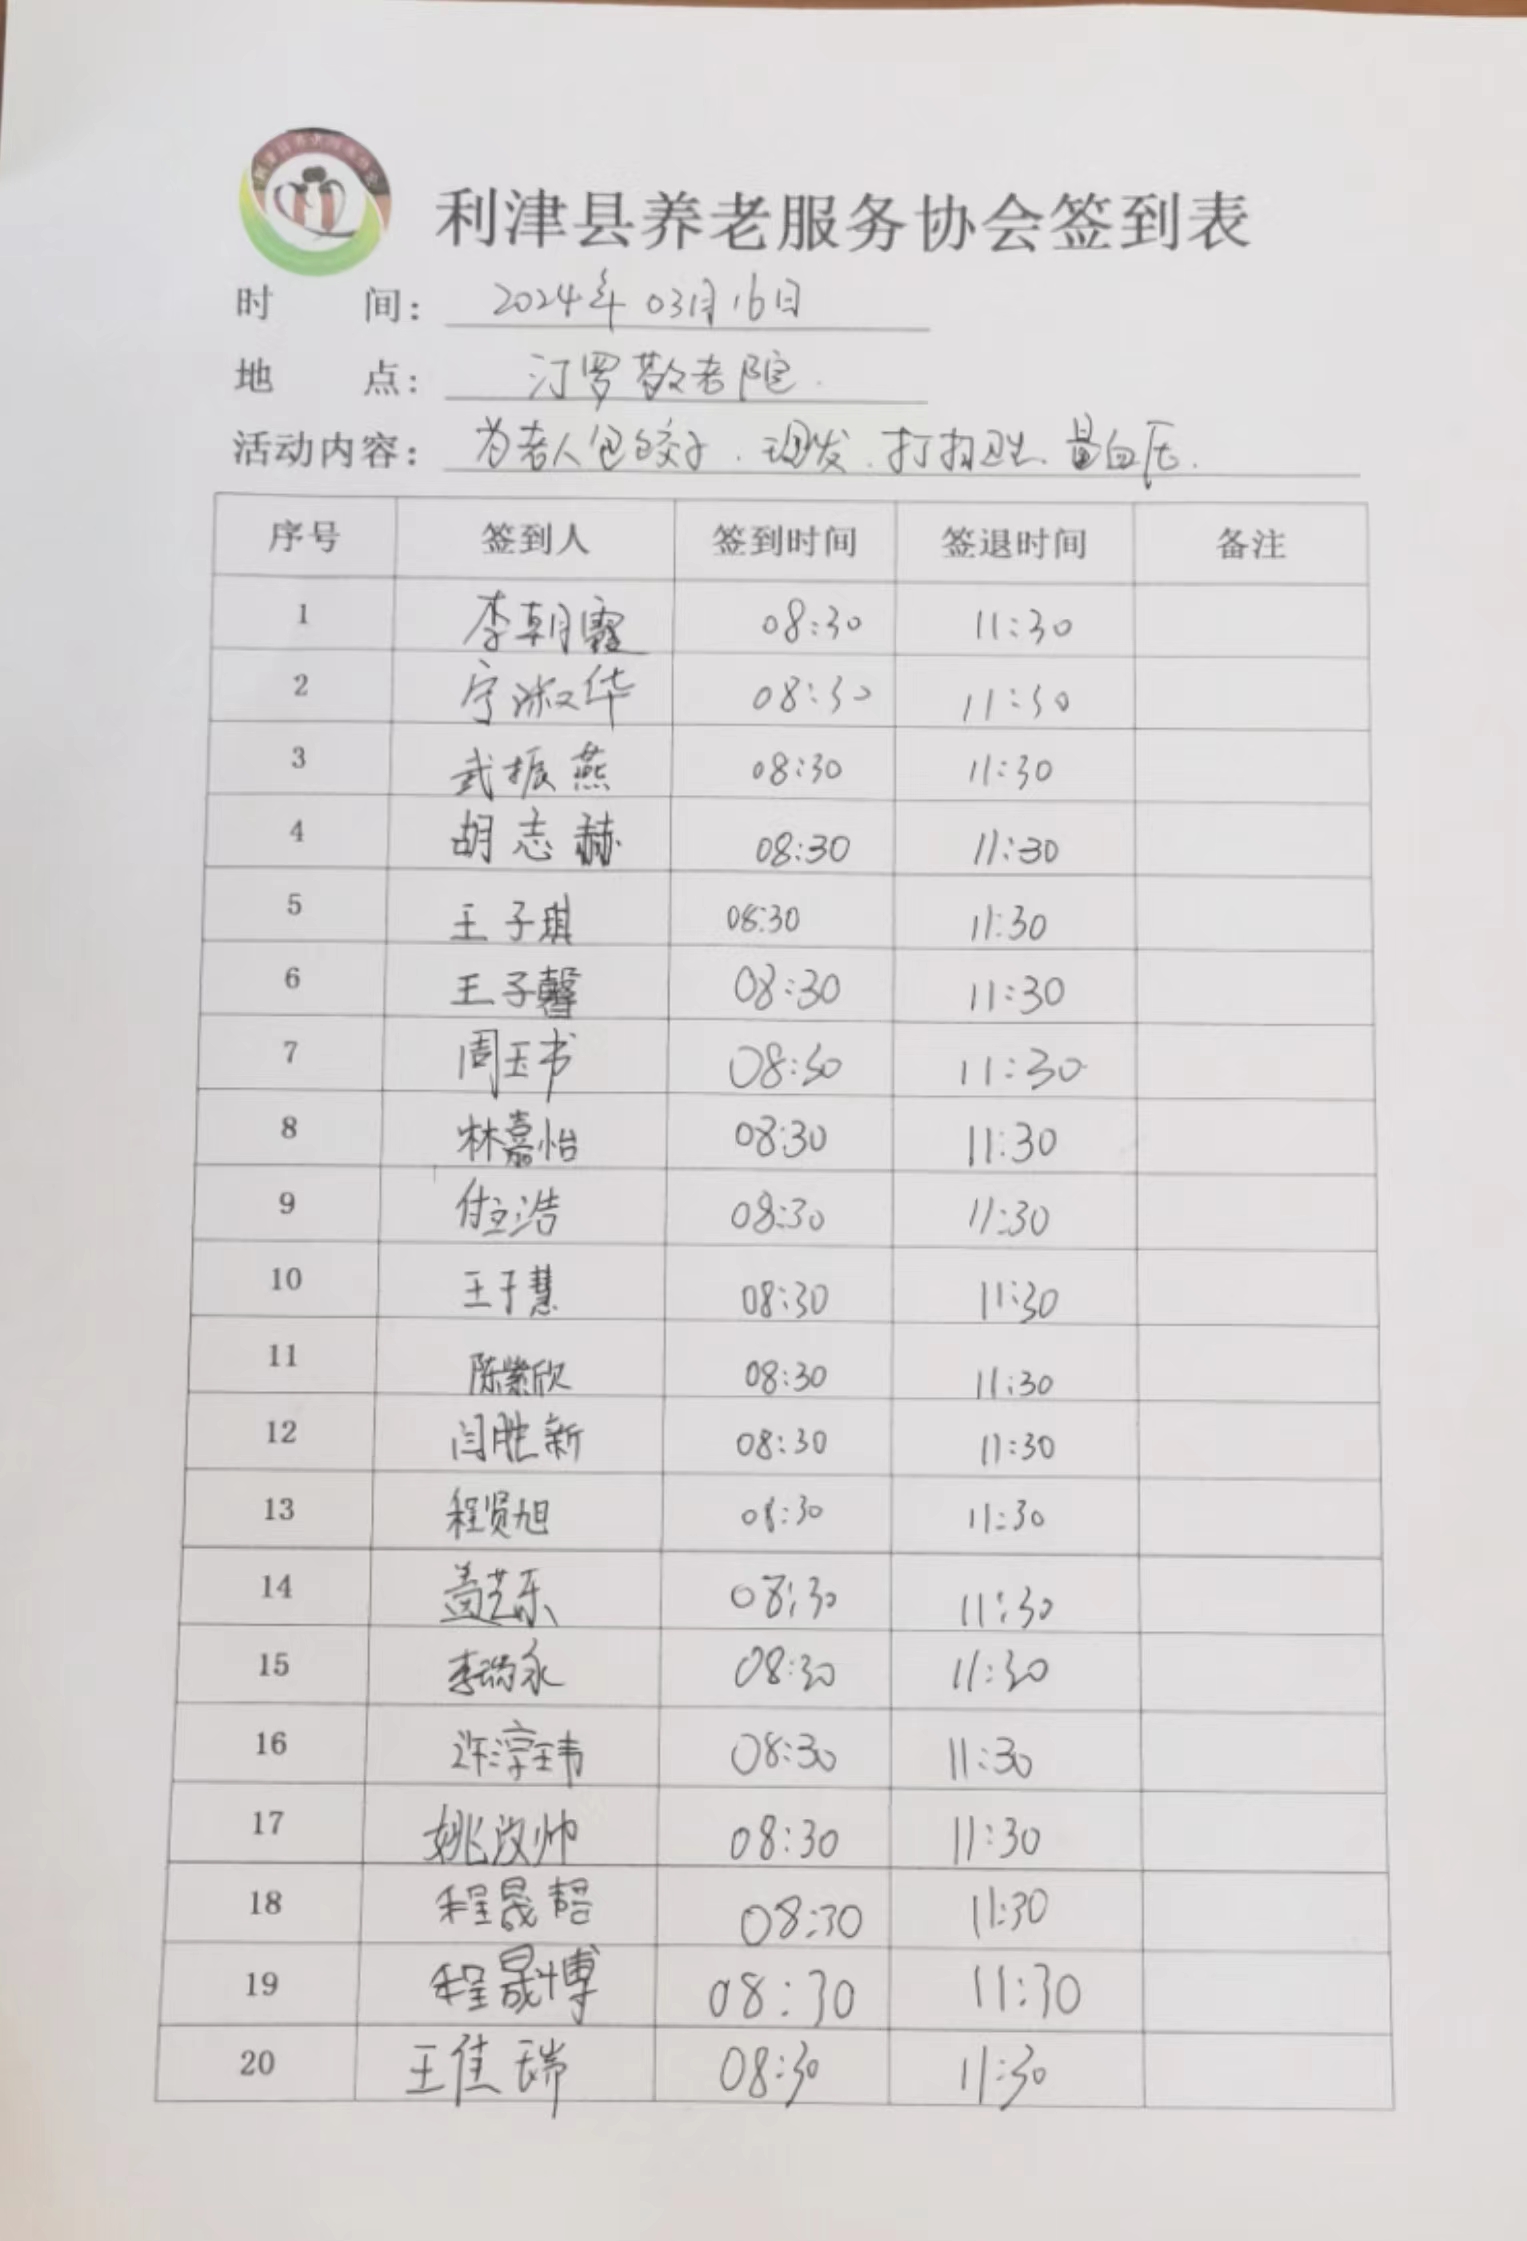 利津县养老服务协会
利津县养老服务协会签到表
时 间: 2024年03月16日
地 点: 汀罗敬老院.
活动内容: 为老人包饺子.理发.打扫卫生.量血压.
序号 签到人 签到时间 签退时间 备注
1 李朝霞 08:30 11:30
2 宁淑华 08:30 11:30
3 武振燕 08:30 11:30
4 胡志赫 08:30 11:30
5 王子琪 08:30 11:30
6 王子馨 08:30 11:30
7 周玉书 08:30 11:30
8 林嘉怡 08:30 11:30
9 浩 08:30 11:30
10 王子慧 08:30 11:30
11 陈紫欣 08:30 11:30
12 闫胜新 08:30 11:30
13 程贤旭 08:30 11:30
14 盖艺乐 08:30 11:30
15 李瑞永 08:30 11:30
16 许淳玮 08:30 11:30
17 姚改帅 08:30 11:30
18 程晟韶 08:30 11:30
19 程晟博 08:30 11:30
20 王佳瑞 08:30 11:30